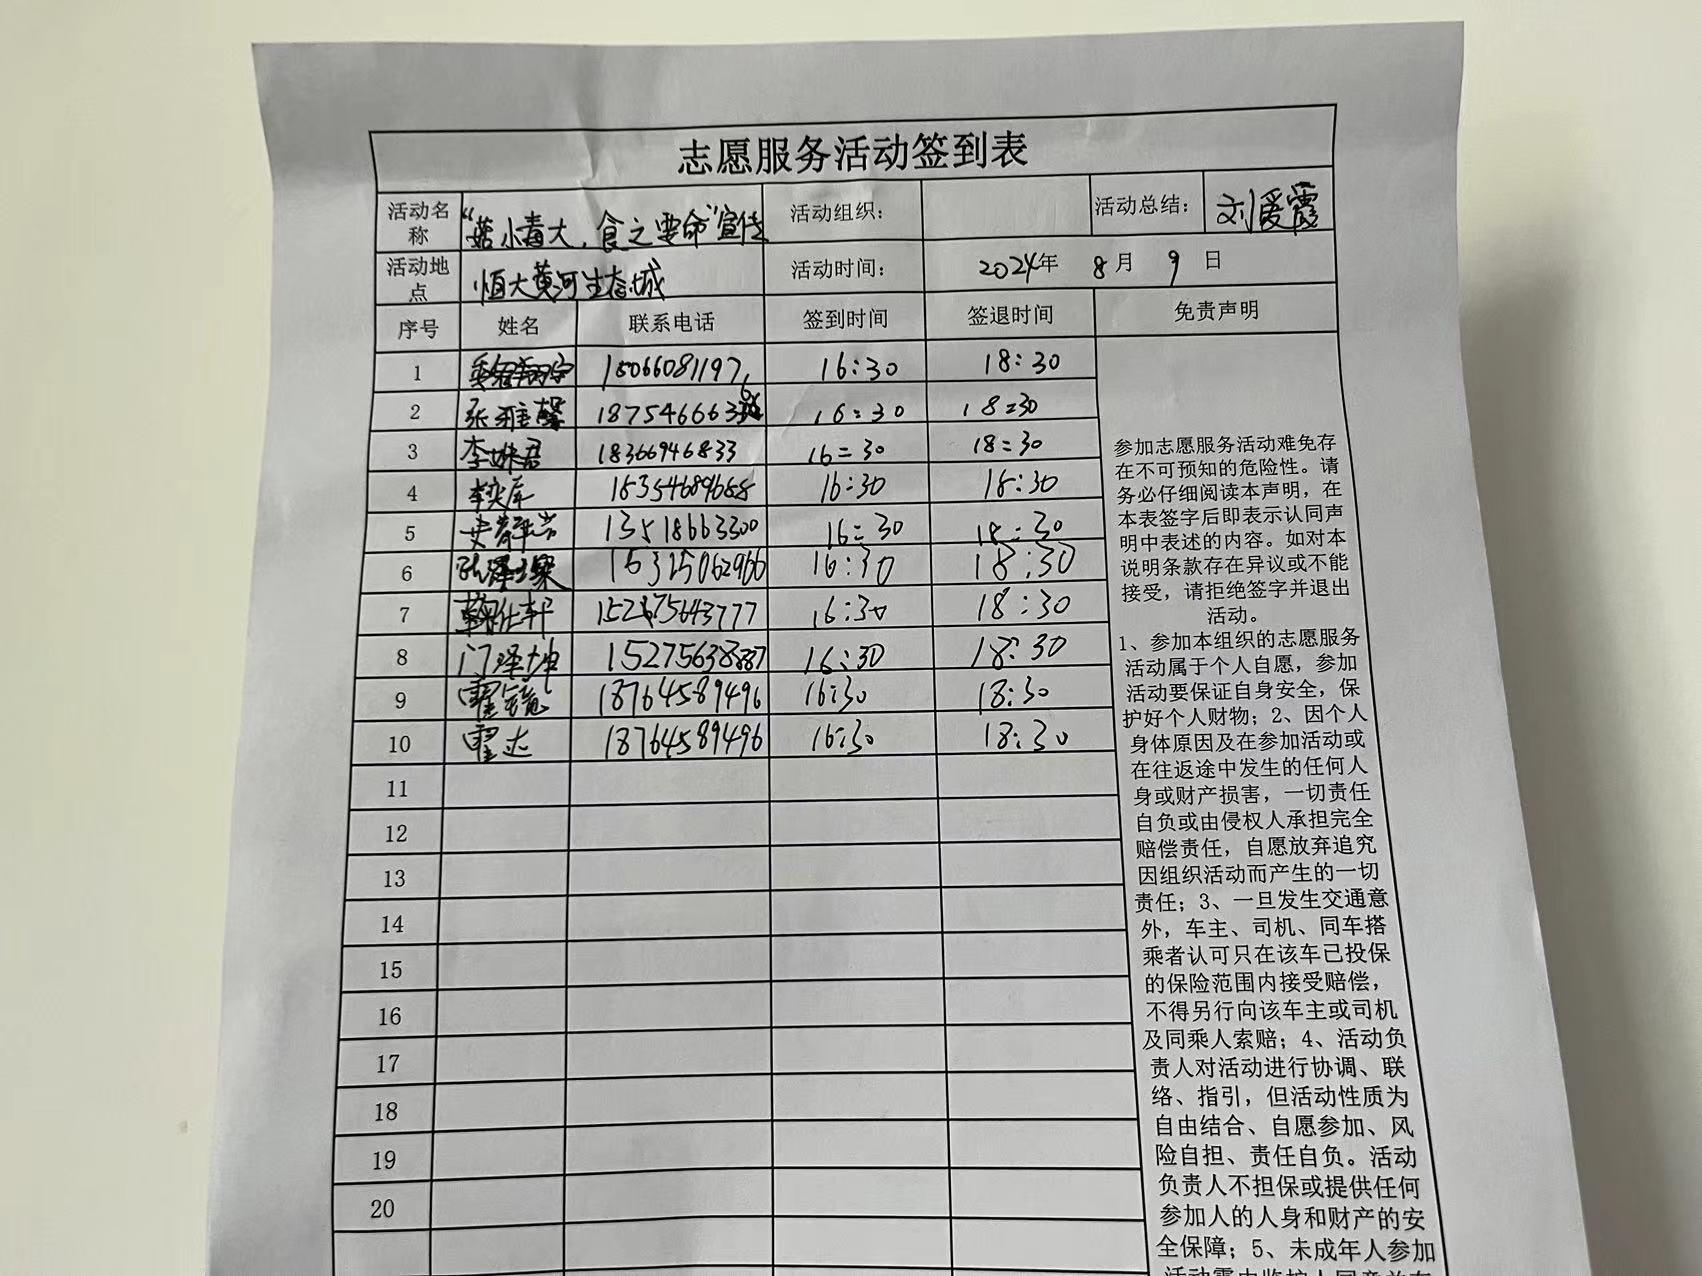 志愿服务活动签到表
活动名称 “菇小毒大，食之要命”宣传 活动组织： 活动总结： 刘爱霞
活动地点 恒大黄河生态城 活动时间： 2024年 8月 9日
序号 姓名 联系电话 签到时间 签退时间 免责声明
1 15066081197 16:30 18:30
2 张雅馨 16:30 18:30
3 李姝君 18366946833 16:30 18:30
4 16:30 18:30
5 史静岩 13518663300 16:30 18:30
6 15325062966 16:30 18:30
7 15267564377 16:30 18:30
8 门泽坤 15275638887 16:30 18:30
9 18764589496 16:30 18:30
10 霍达 18764589496 16:30 18:30
11
12
13
14
15
16
17
18
19
20
参加志愿服务活动难免存
在不可预知的危险性。请
务必仔细阅读本声明，在
本表签字后即表示认同声
明中表述的内容。如对本
说明条款存在异议或不能
接受，请拒绝签字并退出
活动。
1、参加本组织的志愿服务
活动属于个人自愿，参加
活动要保证自身安全，保
护好个人财物；2、因个人
身体原因及在参加活动或
在往返途中发生的任何人
身或财产损害，一切责任
自负或由侵权人承担完全
赔偿责任，自愿放弃追究
因组织活动而产生的一切
责任；3、一旦发生交通意
外，车主、司机、同车搭
乘者认可只在该车已投保
的保险范围内接受赔偿，
不得另行向该车主或司机
及同乘人索赔；4、活动负
责人对活动进行协调、联
络、指引，但活动性质为
自由结合、自愿参加、风
险自担、责任自负。活动
负责人不担保或提供任何
参加人的人身和财产的安
全保障；5、未成年人参加